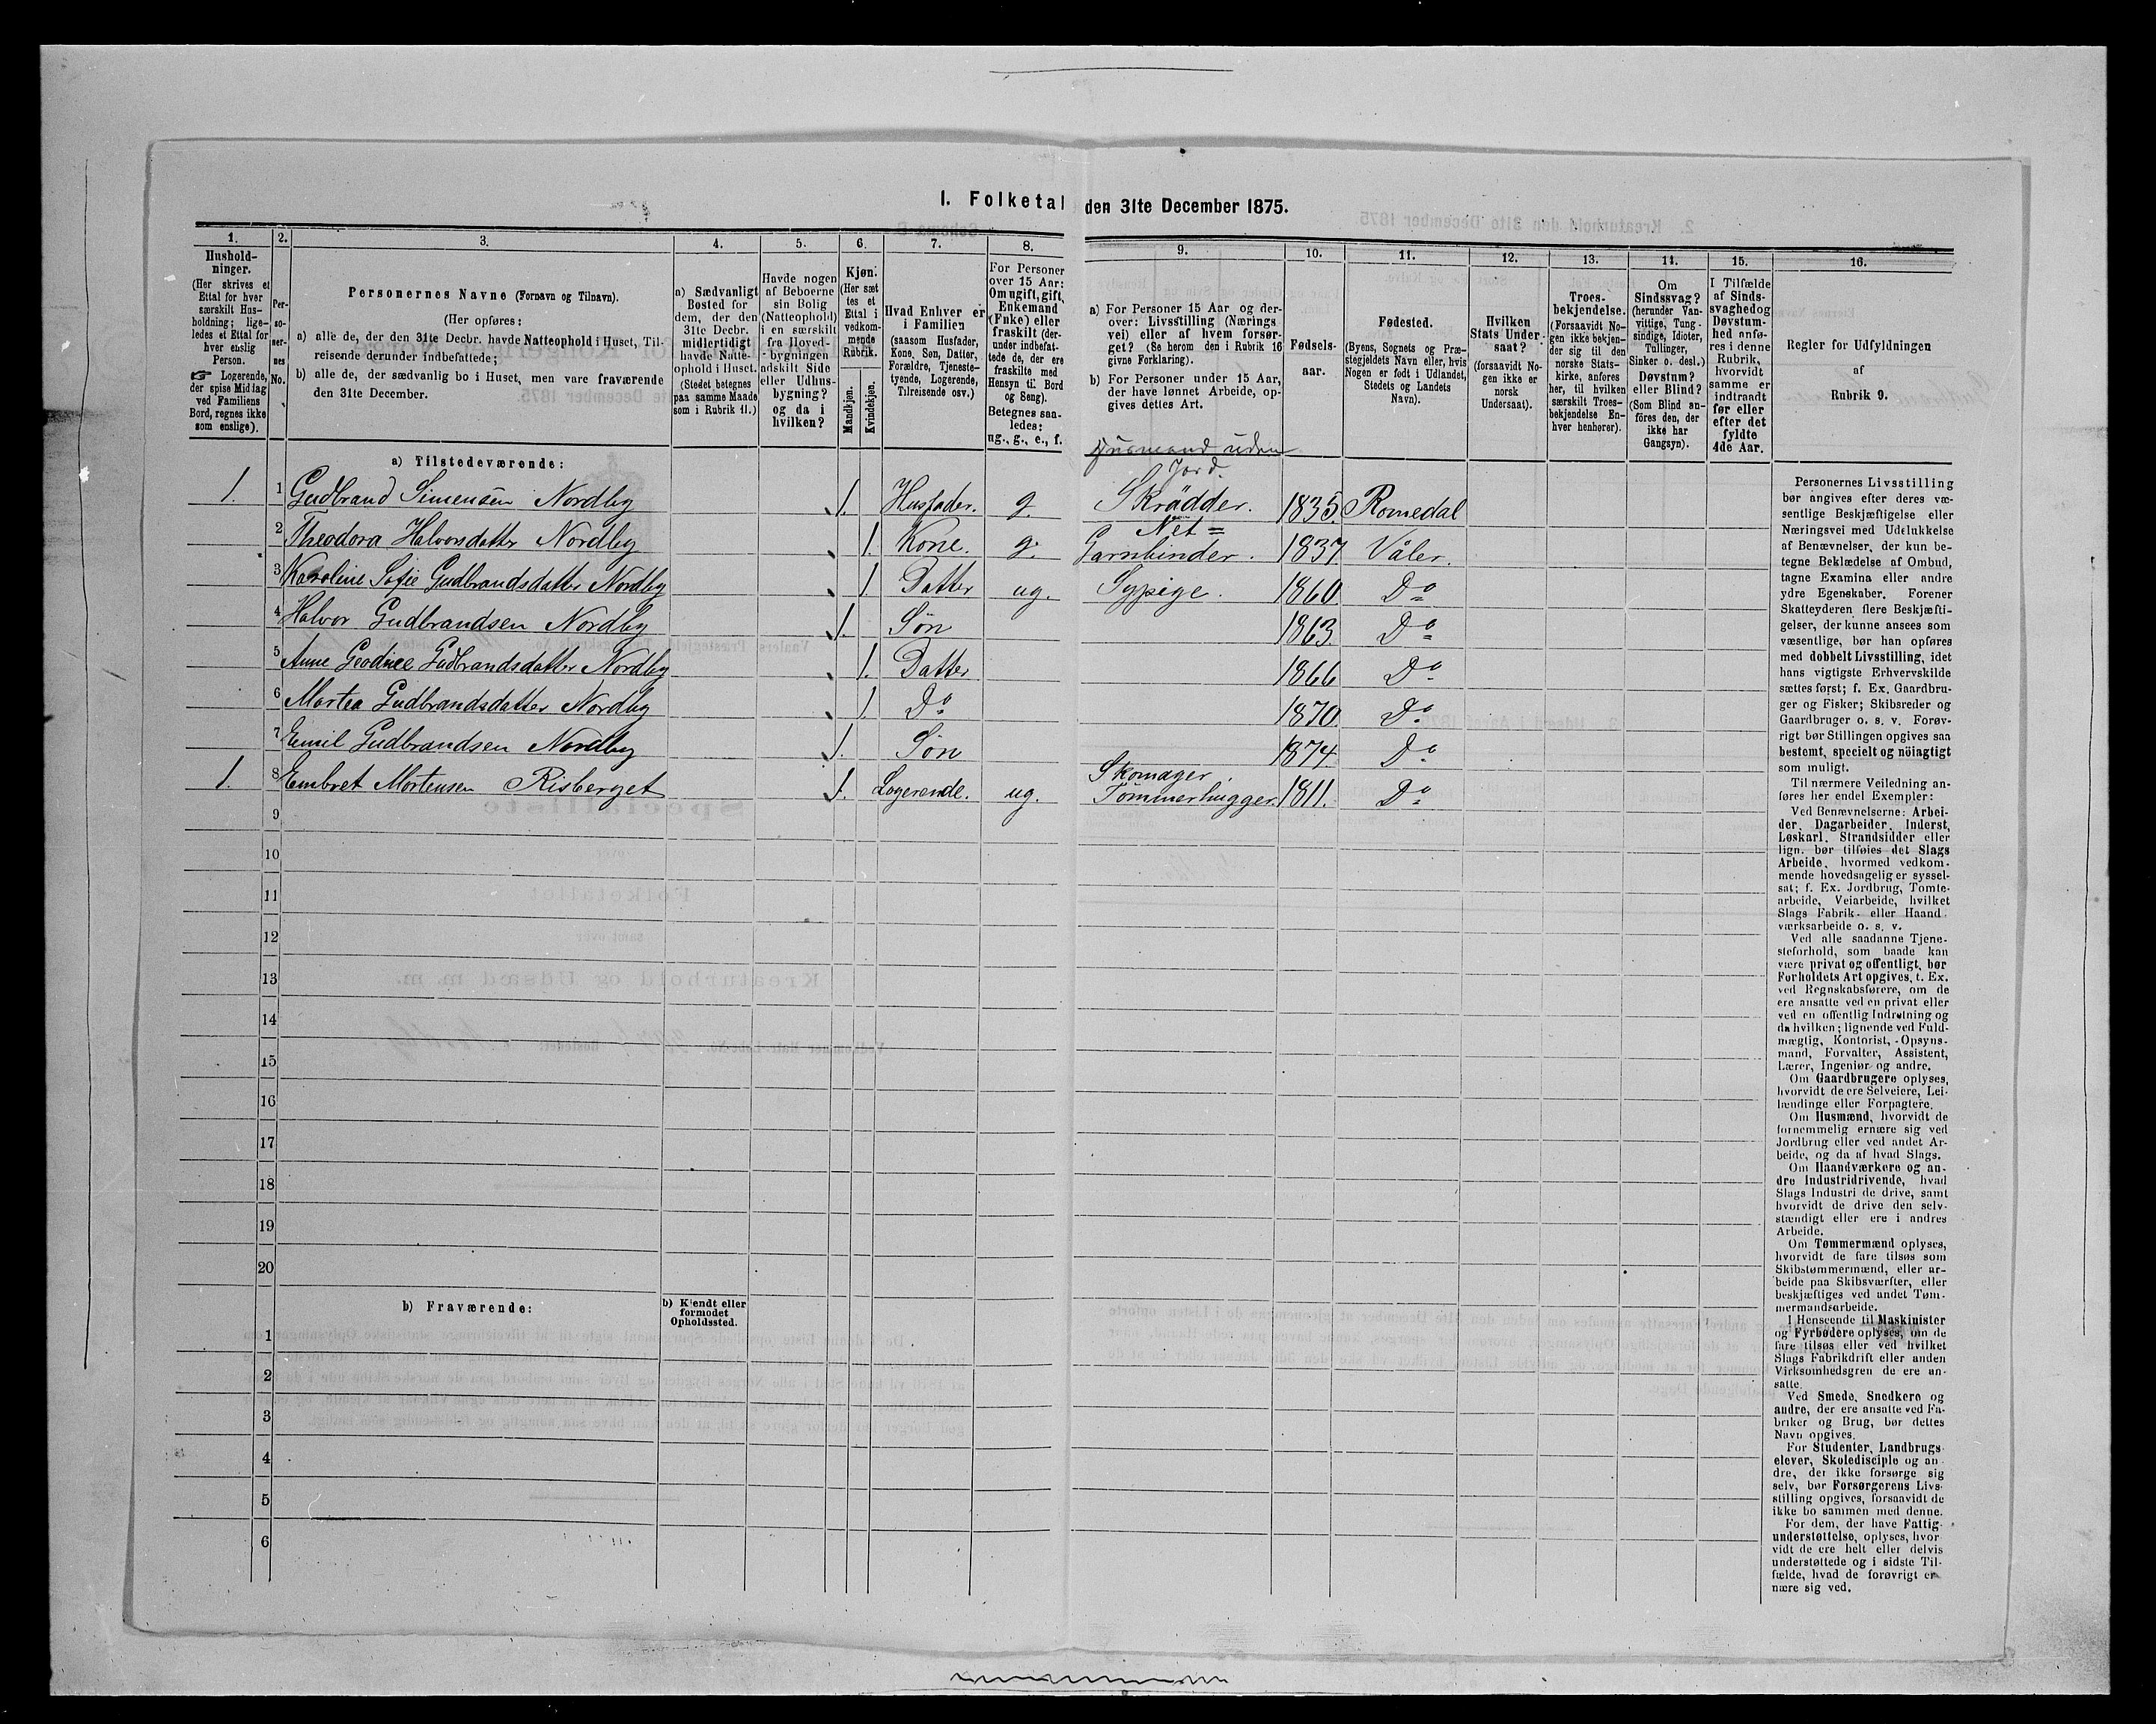 I. Folketal den 31te December 1875.
1. 2. 3. 4. 5. 6. 7. 8. 9. 10. 11. 12. 13. 14. 15. 16.
Hushold-
ninger.
(Her skrives et
Ettal for hver
særskilt Hus-
holdning; lige-
ledes et Ettal for
hver enslig
Person.
☞ Logerende,
der spise Middag
ved Familiens
Bord, regnes ikke
som enslige).
Per-
so-
ner-
nes
No.
Personernes Navne (Fornavn og Tilnavn).
(Her opføres:
a) alle de, der den 31te Decbr. havde Natteophold i Huset, Til-
reisende derunder indbefattede;
b) alle de, der sædvanlig bo i Huset, men vare fraværende
den 31te December.
a) Sædvanligt
Bosted for
dem, der den
31te Decbr.
midlertidigt
havde Natte-
ophold i Huset.
(Stedet betegnes
paa samme Maade
som i Rubrik 11.)
Havde nogen
af Beboerne
sin Bolig
(Natteophold)
i en særskilt
fra Hoved-
bygningen
adskilt Side
eller Udhus-
bygning?
og da i
hvilken?
Kjøn.
(Her sæt
tes et
Ettal i
vedkom-
mende
Rubrik.
Mandkjøn.
Kvindekjøn.
Hvad Enhver er
i Familien
(saasom Husfader,
Kone, Søn, Datter,
Forældre, Tjeneste-
tyende, Logerende,
Tilreisende osv.)
For Personer
over 15 Aar:
Om ugift, gift,
Enkemand
(Enke) eller
fraskilt (der-
under indbefat-
tede de, der ere
fraskilte med
Hensyn til Bord
og Seng).
Betegnes saa-
ledes:
ug., g., e., f.
a) For Personer 15 Aar og der-
over: Livsstilling (Nærings
vei) eller af hvem forsør-
get? (Se herom den i Rubrik 16
givne Forklaring).
b) For Personer under 15 Aar,
der have lønnet Arbeide, op-
gives dettes Art.
Fødsels-
aar.
Fødested.
(Byens, Sognets og Præ-
stegjeldets Navn eller, hvis
Nogen er født i Udlandet,
Stedets og Landets
Navn).
Hvilken
Stats Under-
saat?
(forsaavidt No-
gen ikke er
norsk
Undersaat).
Troes-
bekjendelse.
(Forsaavidt No-
gen ikke bekjen-
der sig til den
norske Stats-
kirke, anføres
her, til hvilken
særskilt Troes-
bekjendelse En-
hver henhører).
Om
Sindssvag?
(herunder Van-
vittige, Tung-
sindige, Idioter,
Tullinger,
Sinker o. desl.)
Døvstum?
eller Blind?
(Som Blind an-
føres den, der
ikke har
Gangsyn).
I Tilfælde
af Sinds-
svaghedog
Døvstum-
hed anfø-
res i denne
Rubrik,
hvorvidt
samme er
indtraadt
før eller
efter det
fyldte
4de Aar.
Regler for Udfyldningen
af
Rubrik 9.
a) Tilstedeværende:
Husmand uden
Jord.
1. 1 Gudbrand Simensen Nordby 1. Husfader. g. Skrädder. 1835. Romedal
Net =
2 Theodora Halvorsdatter Nordby 1. Kone. g. Garnbinder. 1837. Våler.
3 Karoline Sofie Gudbrandsdatter Nordby 1 Datter ug. Sypige. 1860. Do
4 Halvor Gudbrandsen Nordby 1. Søn 1863. Do
5 Anne Gudbrandsdatter Nordby 1. Datter 1866 Do
6 Martea Gudbrandsdatter Nordby 1. Do 1870. Do
7 Emil Gudbrandsen Nordby 1. Søn 1874 Do
Skomager.
1. 8 Embret Mortensen Risberget 1. Logerende. ug. Tømmerhugger. 1811. Do
9
10
11
12
13
14
15
16
17
18
19
20
b) Fraværende:
b) Kjendt eller
formodet
Opholdssted.
1
2
3
4
5
6
Personernes Livsstilling
bør angives efter deres væ-
sentlige Beskjæftigelse eller
Næringsvei med Udelukkelse
af Benævnelser, der kun be-
tegne Beklædelse af Ombud,
tagne Examina eller andre
ydre Egenskaber. Forener
Skatteyderen flere Beskjæfti-
gelser, der kunne ansees som
væsentlige, bør han opføres
med dobbelt Livsstilling, idet
hans vigtigste Erhvervskilde
sættes først; f. Ex. Gaardbru-
ger og Fisker; Skibsreder og
Gaardbruger o. s. v. Forøv-
rigt bør Stillingen opgives saa
bestemt, specielt og nöiagtigt
som muligt.
Til nærmere Veiledning an-
føres her endel Exempler:
Ved Benævnelserne: Arbei-
der, Dagarbeider, Inderst,
Løskarl, Strandsidder eller
lign. bør tilføies det Slags
Arbeide, hvormed vedkom-
mende hovedsagelig er syssel-
sat; f. Ex. Jordbrug, Tomte-
arbeide, Veiarbeide, hvilket
Slags Fabrik- eller Haand
værksarbeide o. s. v.
Ved alle saadanne Tjene-
steforhold, som baade kan
være privat og offentligt, bør
Forholdets Art opgives, t. Ex.
ved Regnskabsførere, om de
ere ansatte ved en privat eller
ved en offentlig Indretning og
da hvilken; lignende ved Fuld-
mægtig, Kontorist, Opsyns-
mand, Forvalter, Assistent,
Lærer, Ingeniør og andre.
Om Gaardbrugere oplyses,
hvorvidt de ere Selveiere, Lei-
lændinge eller Forpagtere.
Om Husmænd, hvorvidt de
fornemmelig ernære sig ved
Jordbrug eller ved andet Ar-
beide, og da af hvad Slags.
Om Haandværkere og an-
dre Industridrivende, hvad
Slags Industri de drive, samt
hvorvidt de drive den selv-
stændigt eller ere i andres
Arbeide.
Om Tømmermænd oplyses,
hvorvidt de fare tilsøs som
Skibstømmermænd, eller ar-
beide paa Skibsværfter, eller
beskjæftiges ved andet Tøm-
mermandsarbeide.
I Henseende til Maskinister
og Fyrbødere oplyses, om de
fare tilsøs eller ved hvilket
Slags Fabrikdrift eller anden
Virksomhedsgren de ere an-
satte.
Ved Smede, Snedkere og
andre, der ere ansatte ved Fa-
briker og Brug, bør dettes
Navn opgives.
For Studenter, Landbrugs-
elever, Skoledisciple og an-
dre, der ikke forsørge sig
selv, bør Forsørgerens Livs-
stilling opgives, forsaavidt de
ikke bo sammen med denne.
For dem, der have Fattig-
understøttelse, oplyses, hvor
vidt de ere helt eller delvis
understøttede og i sidste Til-
fælde, hvad de forøvrigt er-
nære sig ved.